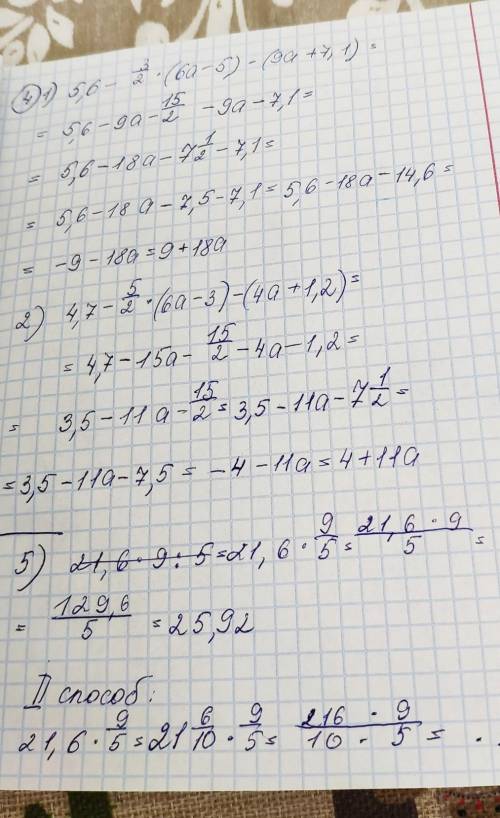 4) 1) 5,6 - 3/2 · (6a - 5) - (9a + 7,1) =
= 5,6 - 9a - 15/2 - 9a - 7,1 =
= 5,6 - 18a - 7 1/2 - 7,1 =
= 5,6 - 18a - 7,5 - 7,1 = 5,6 - 18a - 14,6 =
= -9 - 18a = 9 + 18a
2) 4,7 - 5/2 · (6a - 3) - (4a + 1,2) =
= 4,7 - 15a - 15/2 - 4a - 1,2 =
= 3,5 - 11a - 15/2 = 3,5 - 11a - 7 1/2 =
= 3,5 - 11a - 7,5 = -4 - 11a = 4 + 11a
5) 21,6 · 9 : 5 = 21,6 · 9/5 = 21,6 · 9/5 =
= 129,6/5 = 25,92
II способ:
21,6 · 9/5 = 21 6/10 · 9/5 = 216 · 9/10 · 5 = ...